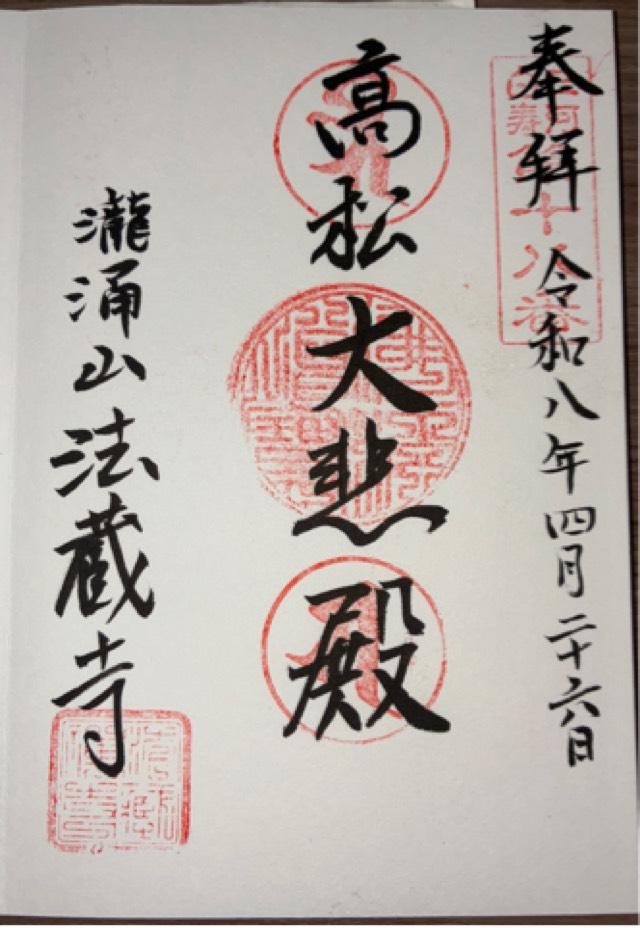 奉拝
令和八年四月二十六日
高松大悲殿
瀧涌山法蔵寺